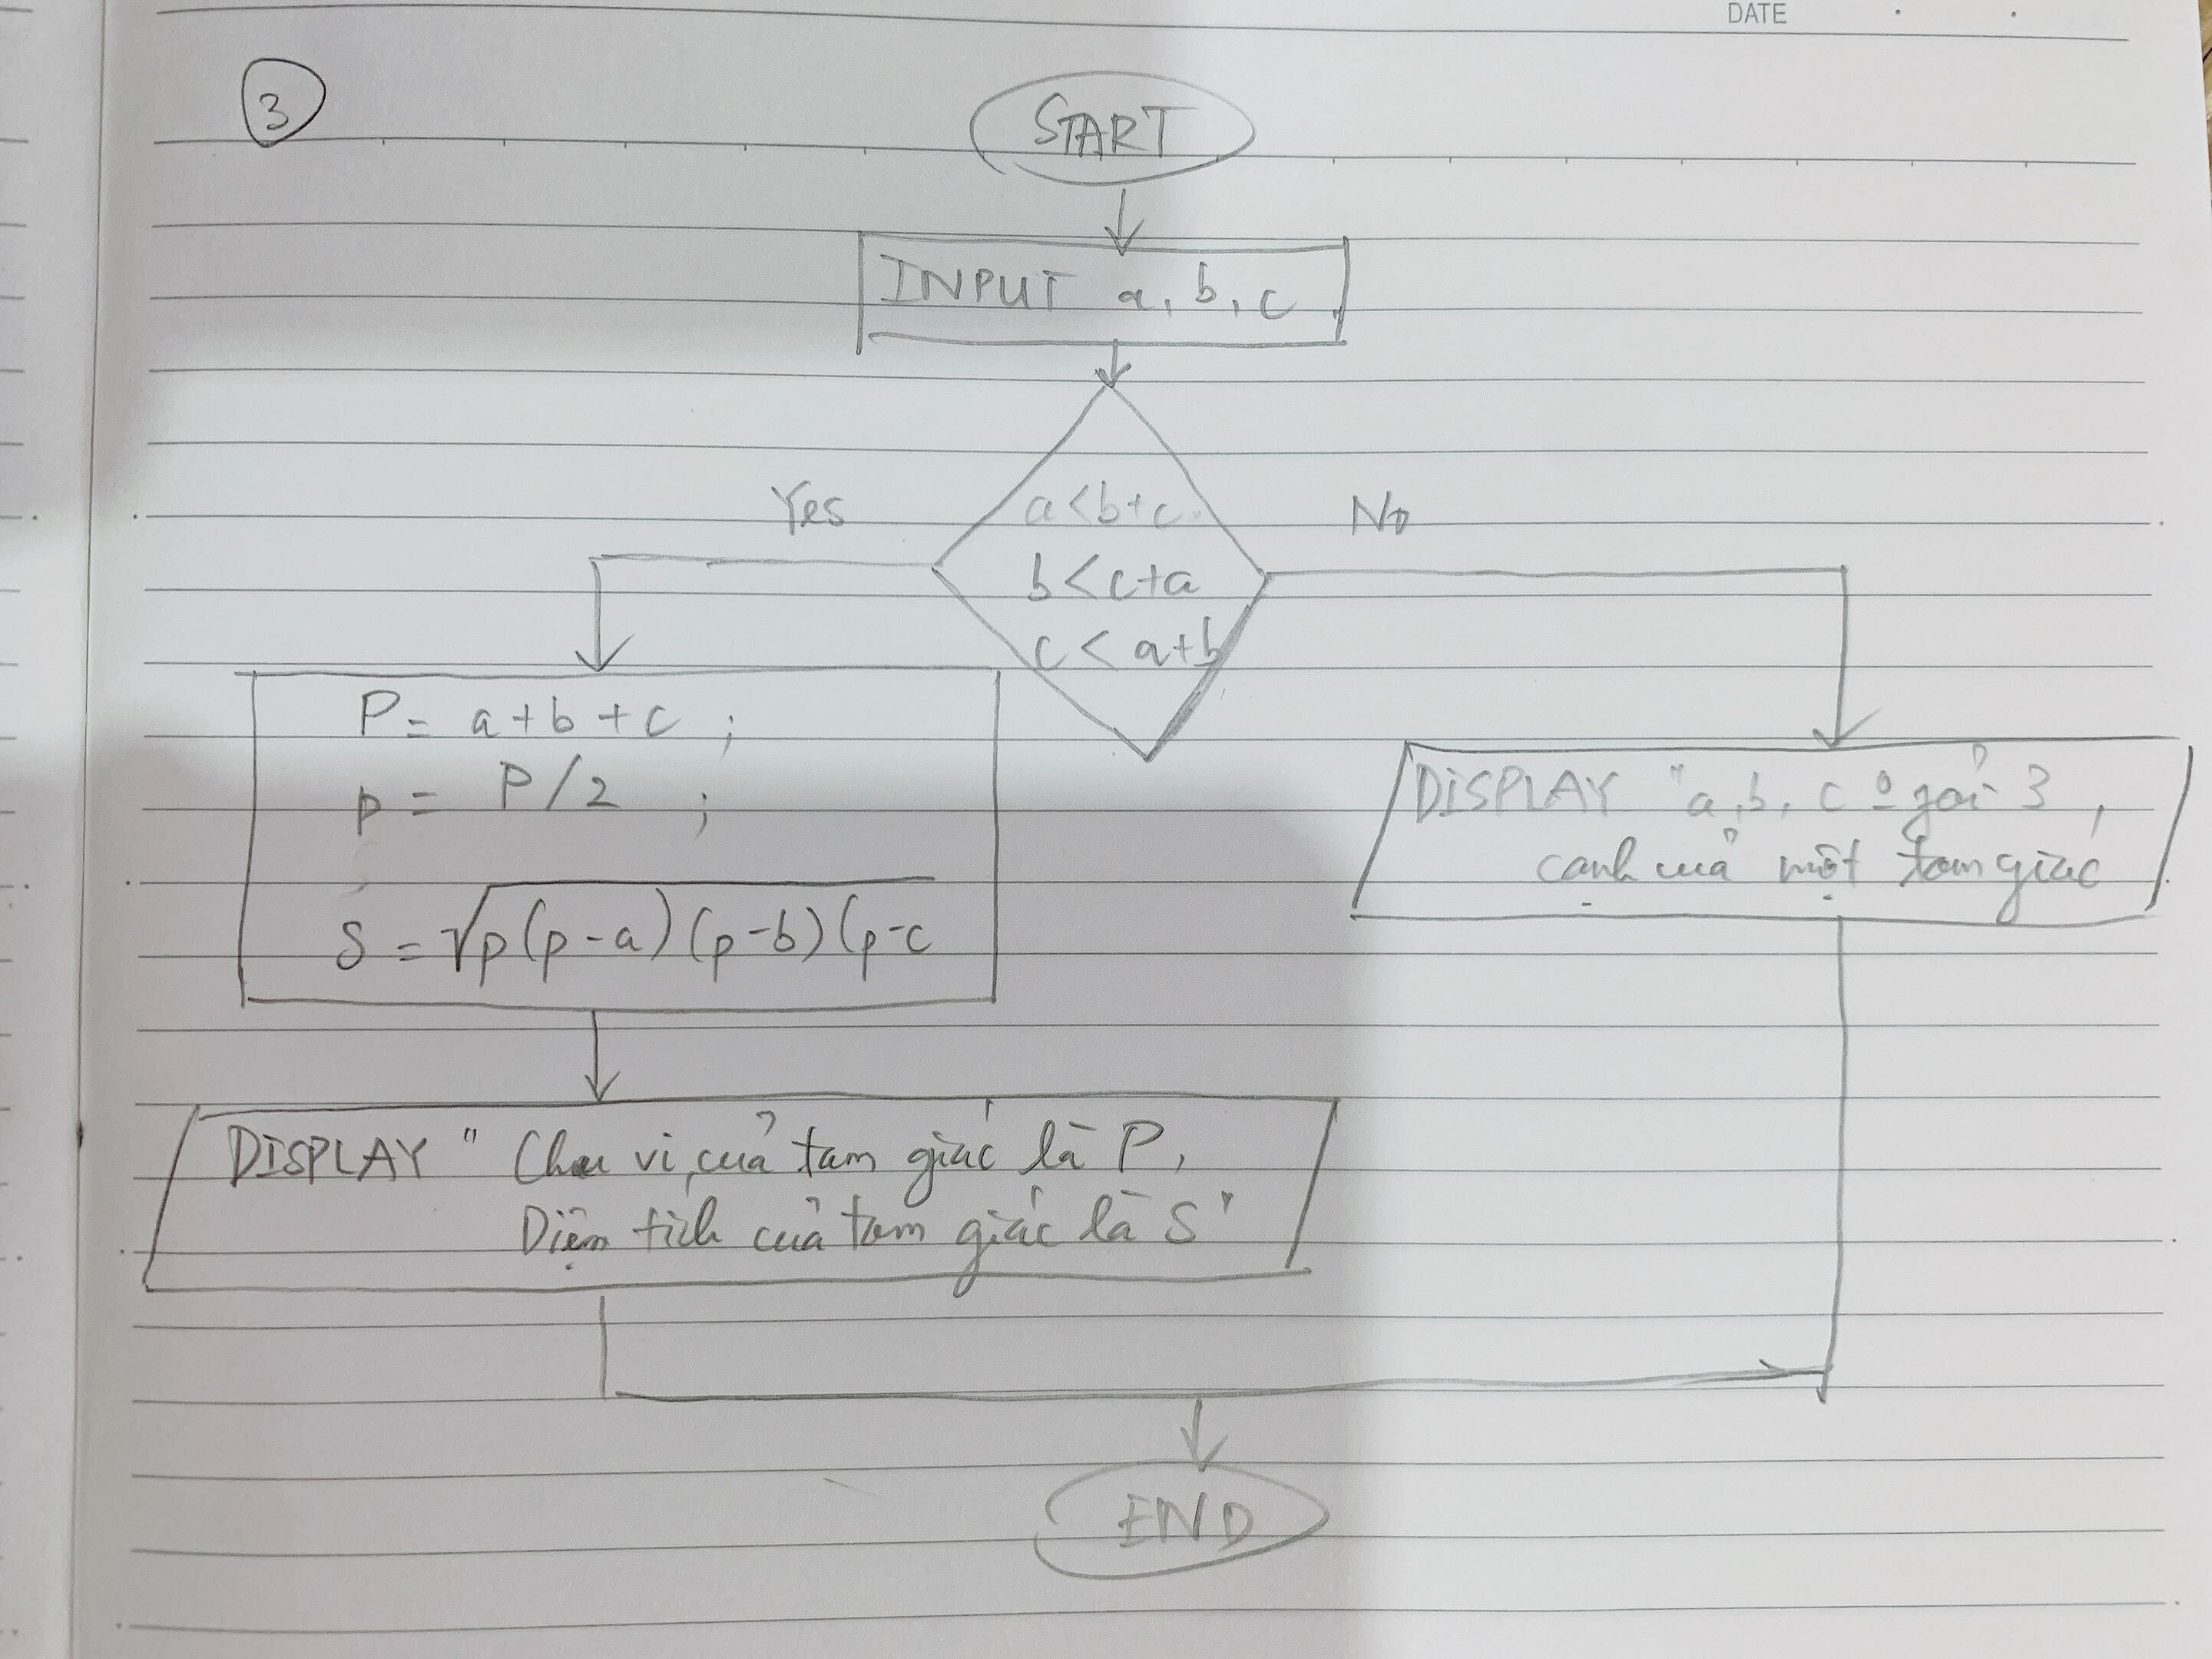 DATE
3
START
INPUT a, b, c
a<b+c
Yes
No
b<c+a
c<a+b
P= a+b+c ;
p= P/2 ;
S=√p(p-a)(p-b)(p-c
DISPLAY "a,b, c 3
cạnh của một tam giác
DISPLAY " Chu vi của tam giác là P,
Diện tích của tam giác là S"
END